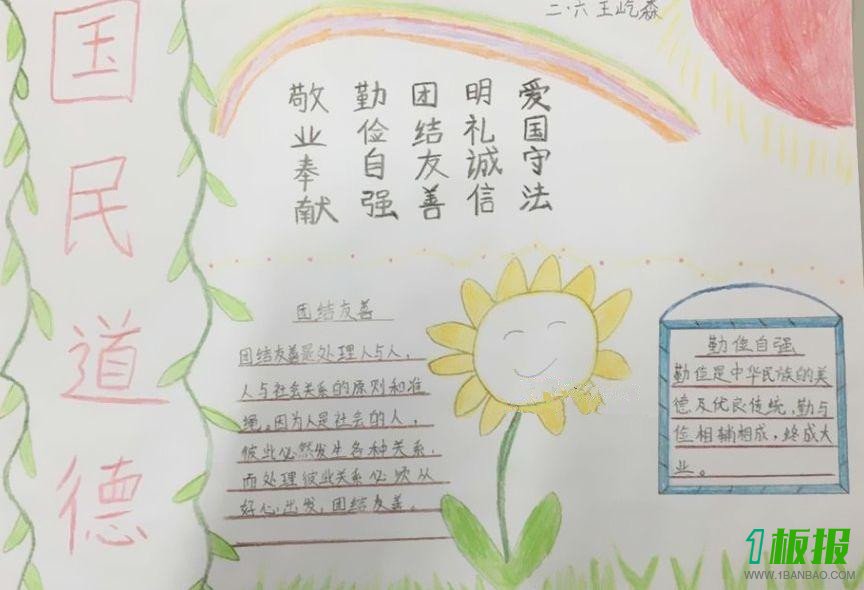 国民道德
二·六 王屹森
爱国守法
明礼诚信
团结友善
勤俭自强
敬业奉献
团结友善
团结友善是处理人与人,
人与社会关系的原则和准
绳。因为人是社会的人,
彼此必然发生各种关系,
而处理彼此关系必须从
好心出发,团结友善。
勤俭自强
勤俭是中华民族的美
德及优良传统,勤与
俭相辅相成,终成大
业。
1板报
WWW.1BANBAO.COM